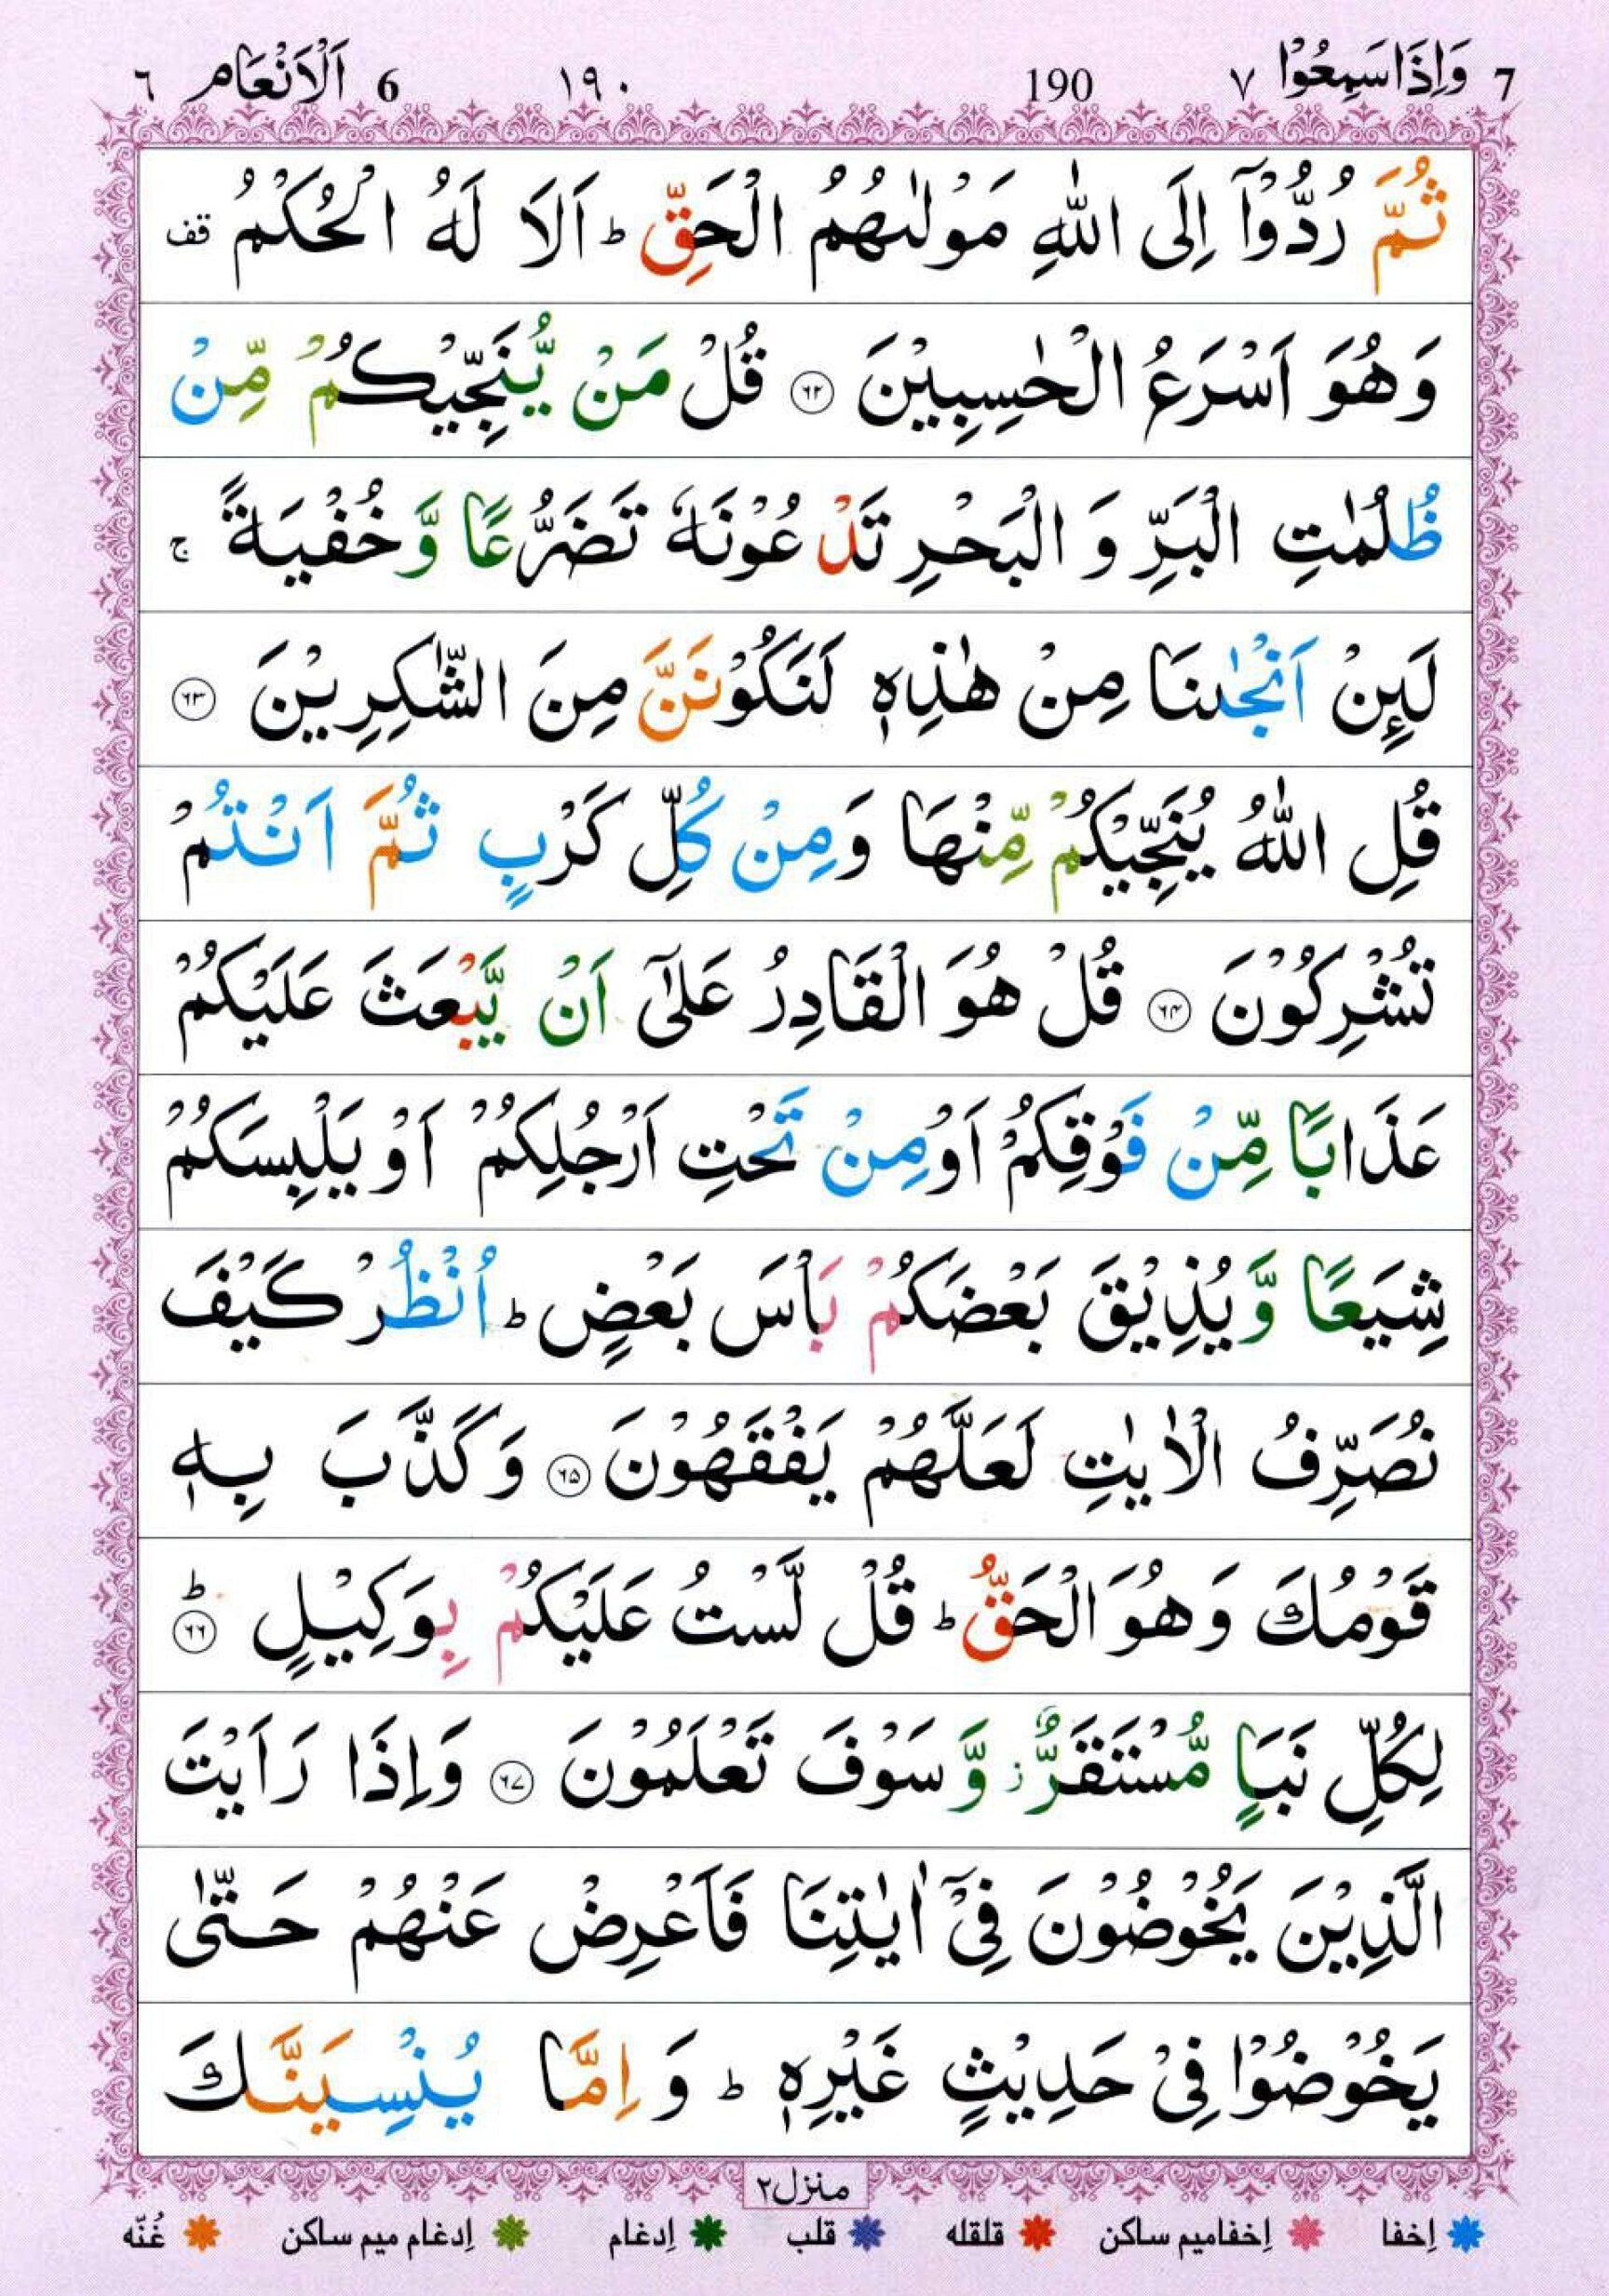 7 وَاِذَا سَمِعُوْا ٧ 190 ١٩٠ 6 اَلْاَنْعَام ٦
ثُمَّ رُدُّوْٓا اِلَى اللّٰهِ مَوْلٰىهُمُ الْحَقِّ ؕ اَلَا لَهُ الْحُكْمُ قف
وَهُوَ اَسْرَعُ الْحٰسِبِيْنَ ﴿۶۲﴾ قُلْ مَنْ يُّنَجِّيْكُمْ مِّنْ
ظُلُمٰتِ الْبَرِّ وَ الْبَحْرِ تَدْعُوْنَهٗ تَضَرُّعًا وَّخُفْيَةً ۚ
لَىِٕنْ اَنْجٰىنَا مِنْ هٰذِهٖ لَنَكُوْنَنَّ مِنَ الشّٰكِرِيْنَ ﴿۶۳﴾
قُلِ اللّٰهُ يُنَجِّيْكُمْ مِّنْهَا وَمِنْ كُلِّ كَرْبٍ ثُمَّ اَنْتُمْ
تُشْرِكُوْنَ ﴿۶۴﴾ قُلْ هُوَ الْقَادِرُ عَلٰٓى اَنْ يَّبْعَثَ عَلَيْكُمْ
عَذَابًا مِّنْ فَوْقِكُمْ اَوْ مِنْ تَحْتِ اَرْجُلِكُمْ اَوْ يَلْبِسَكُمْ
شِيَعًا وَّيُذِيْقَ بَعْضَكُمْ بَاْسَ بَعْضٍ ؕ اُنْظُرْ كَيْفَ
نُصَرِّفُ الْاٰيٰتِ لَعَلَّهُمْ يَفْقَهُوْنَ ﴿۶۵﴾ وَكَذَّبَ بِهٖ
قَوْمُكَ وَهُوَ الْحَقُّ ؕ قُلْ لَّسْتُ عَلَيْكُمْ بِوَكِيْلٍ ؕ﴿۶۶﴾
لِكُلِّ نَبَاٍ مُّسْتَقَرٌّ ؗ وَّسَوْفَ تَعْلَمُوْنَ ﴿۶۷﴾ وَاِذَا رَاَيْتَ
الَّذِيْنَ يَخُوْضُوْنَ فِيْٓ اٰيٰتِنَا فَاَعْرِضْ عَنْهُمْ حَتّٰى
يَخُوْضُوْا فِيْ حَدِيْثٍ غَيْرِهٖ ؕ وَ اِمَّا يُنْسِيَنَّكَ
منزل۲
اِخفا اِخفامیم ساکن قلقله قلب اِدغام اِدغام میم ساکن غُنّه